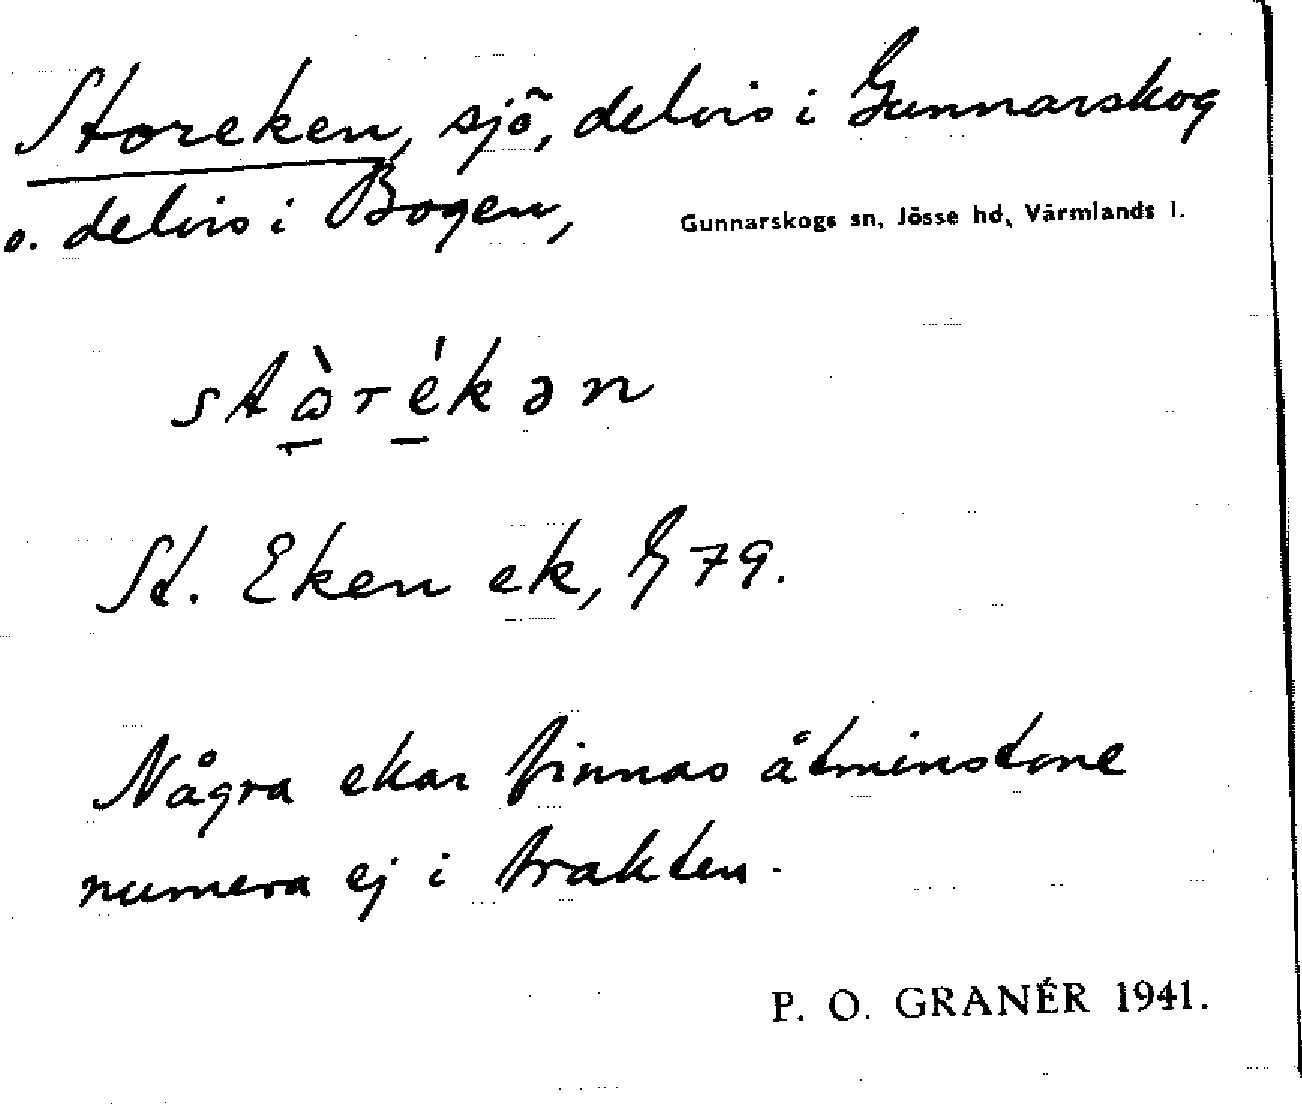 Storeken, sjö, delvis i Gunnarskog
o. delvis i Bogen,
Gunnarskogs sn, Jösse hd, Värmlands l.
stὼrékən
St. Eken ek, G 79.
Några ekar finnas åtminstone
numera ej i trakten.
P. O. GRANÉR 1941.